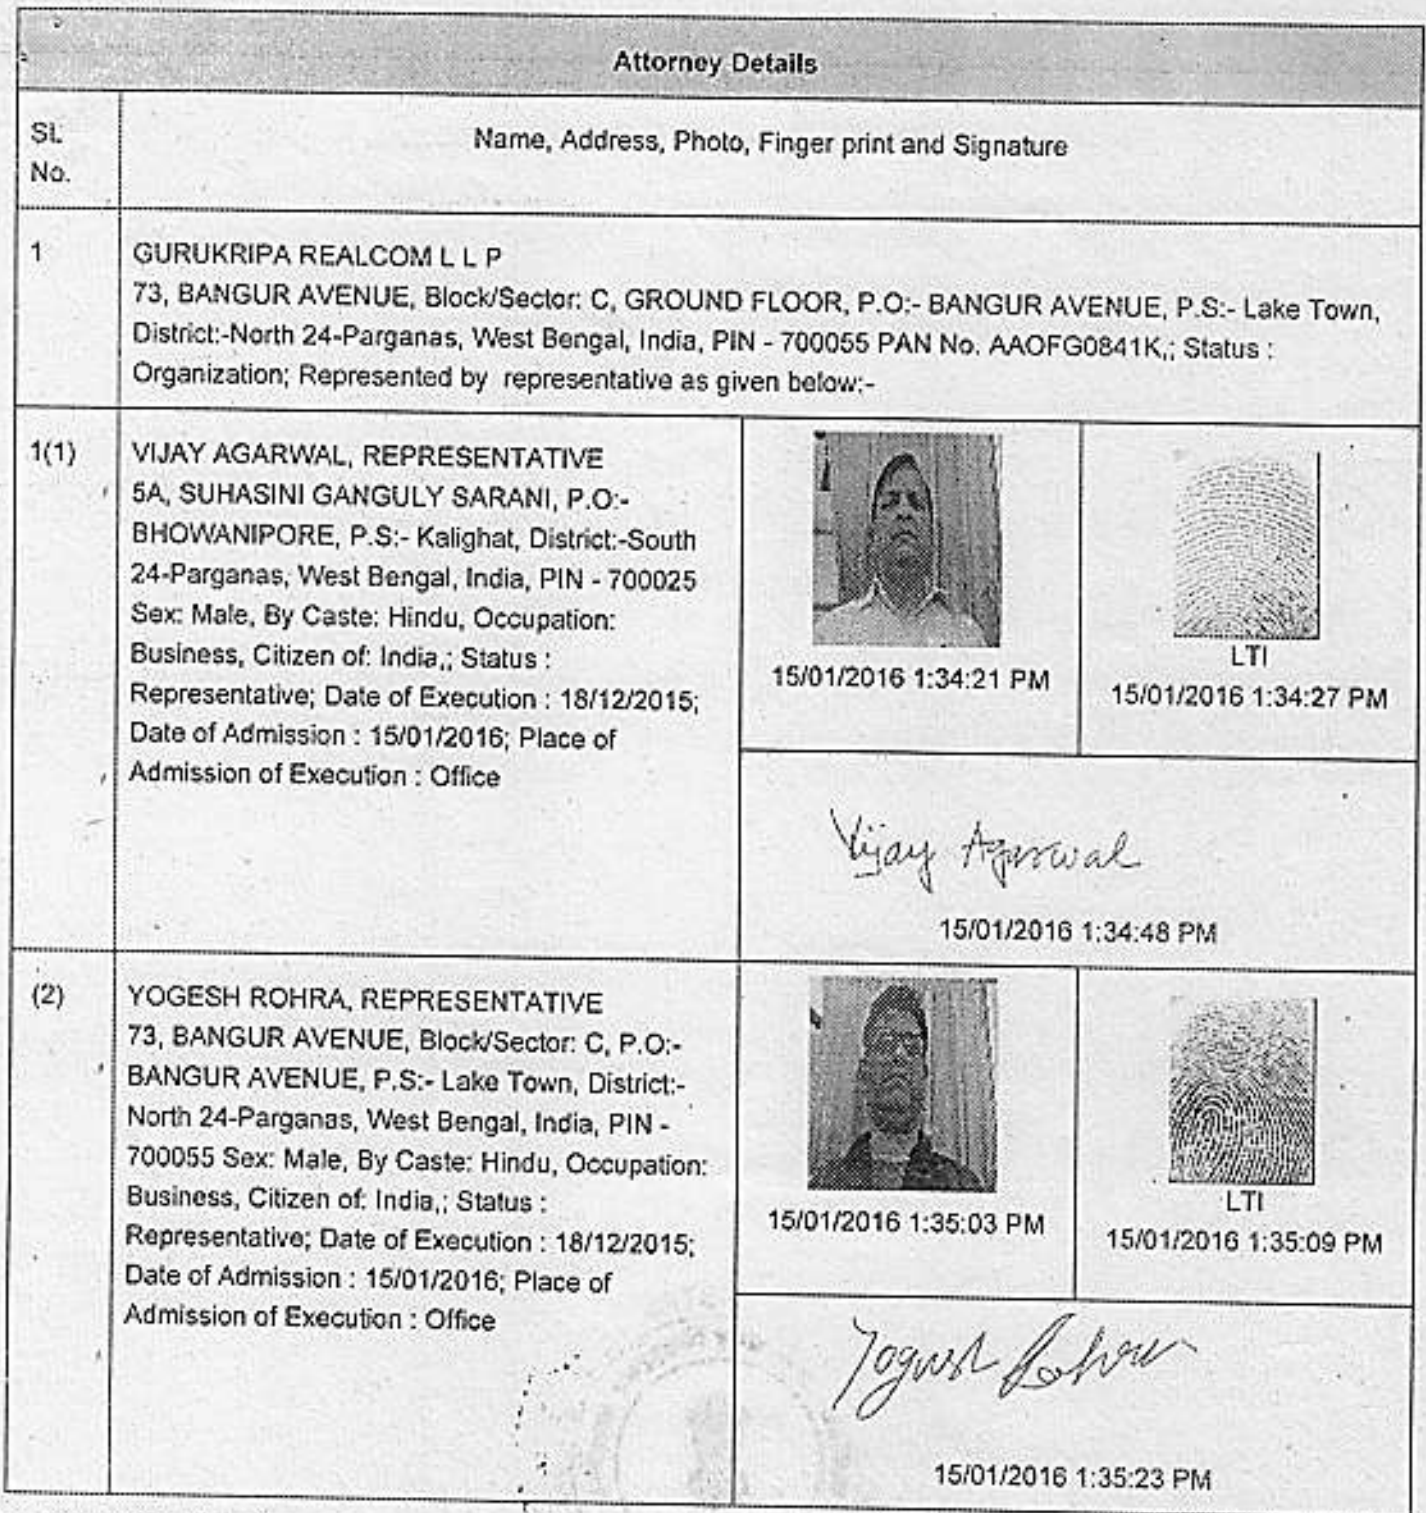 Attorney Details
SL
No.
Name, Address, Photo, Finger print and Signature
1
GURUKRIPA REALCOM L L P
73, BANGUR AVENUE, Block/Sector: C, GROUND FLOOR, P.O:- BANGUR AVENUE, P.S:- Lake Town,
District:-North 24-Parganas, West Bengal, India, PIN - 700055 PAN No. AAOFG0841K,; Status :
Organization; Represented by representative as given below:-
1(1)
VIJAY AGARWAL, REPRESENTATIVE
5A, SUHASINI GANGULY SARANI, P.O:-
BHOWANIPORE, P.S:- Kalighat, District:-South
24-Parganas, West Bengal, India, PIN - 700025
Sex: Male, By Caste: Hindu, Occupation:
Business, Citizen of: India,; Status :
Representative; Date of Execution : 18/12/2015;
Date of Admission : 15/01/2016; Place of
Admission of Execution : Office
15/01/2016 1:34:21 PM
LTI
15/01/2016 1:34:27 PM
Vijay Agarwal
15/01/2016 1:34:48 PM
(2)
YOGESH ROHRA, REPRESENTATIVE
73, BANGUR AVENUE, Block/Sector: C, P.O:-
BANGUR AVENUE, P.S:- Lake Town, District:-
North 24-Parganas, West Bengal, India, PIN -
700055 Sex: Male, By Caste: Hindu, Occupation:
Business, Citizen of: India,; Status :
Representative; Date of Execution : 18/12/2015;
Date of Admission : 15/01/2016; Place of
Admission of Execution : Office
15/01/2016 1:35:03 PM
LTI
15/01/2016 1:35:09 PM
Yogesh Rohra
15/01/2016 1:35:23 PM